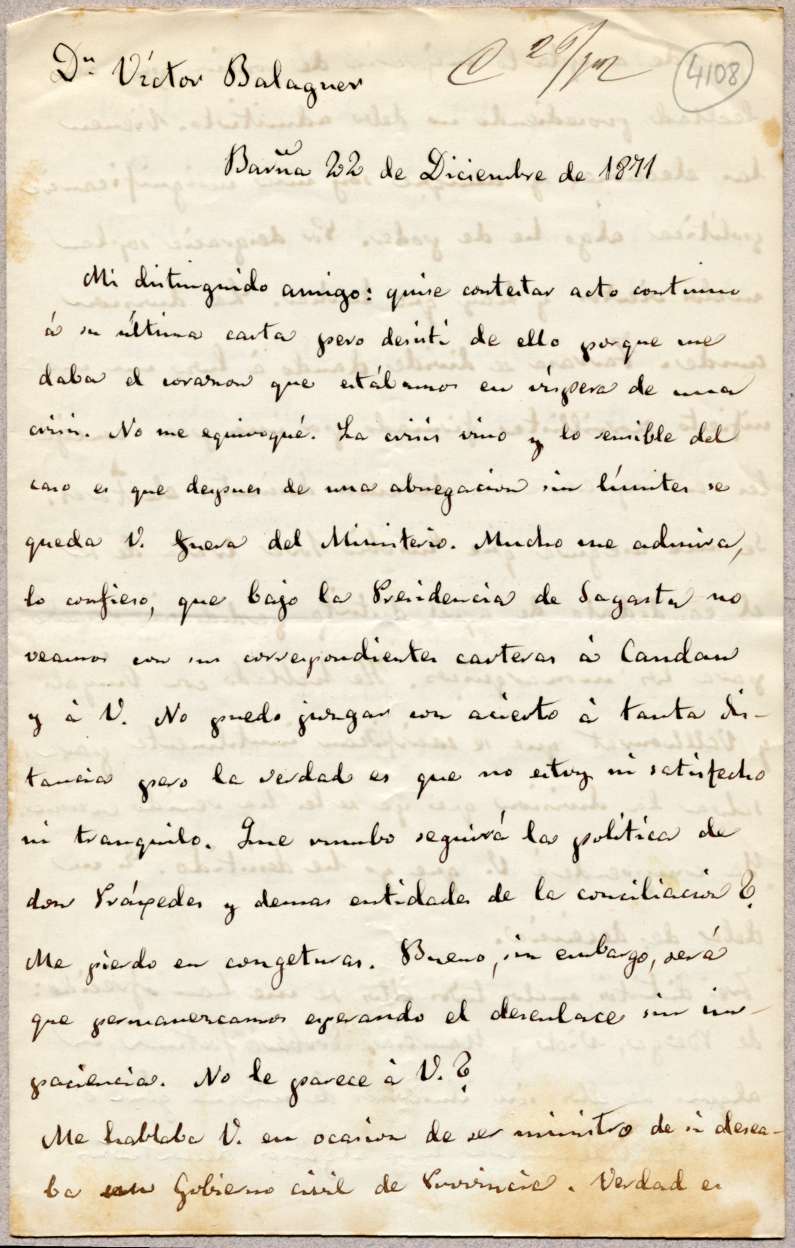 Dn Víctor Balaguer
C 26/
4108
Barña 22 de Diciembre de 1871
Mi distinguido amigo: quise contestar acto continuo
á su última carta pero desistí de ello porque me
daba el corazon que estábamos en víspera de una
crisis. No me equivoqué. La crisis vino y lo sensible del
caso es que despues de una abnegacion sin límites se
queda V. fuera del Ministerio. Mucho me admira,
lo confieso, que bajo la Presidencia de Sagasta no
veamos con sus correspondientes carteras à Candau
y à V. No puedo juzgar con acierto à tanta dis-
tancia pero la verdad es que no estoy ni satisfecho
ni tranquilo. Que rumbo seguirá la política de
don Práxedes y demas entidades de la conciliacion?
Me pierdo en congeturas. Bueno, sin embargo, será
que permanezcamos esperando el desenlace sin im-
paciencia. No le parece à V.?
Me hablaba V. en ocasion de ser ministro de si desea-
ba un Gobierno civil de Provincia. Verdad es